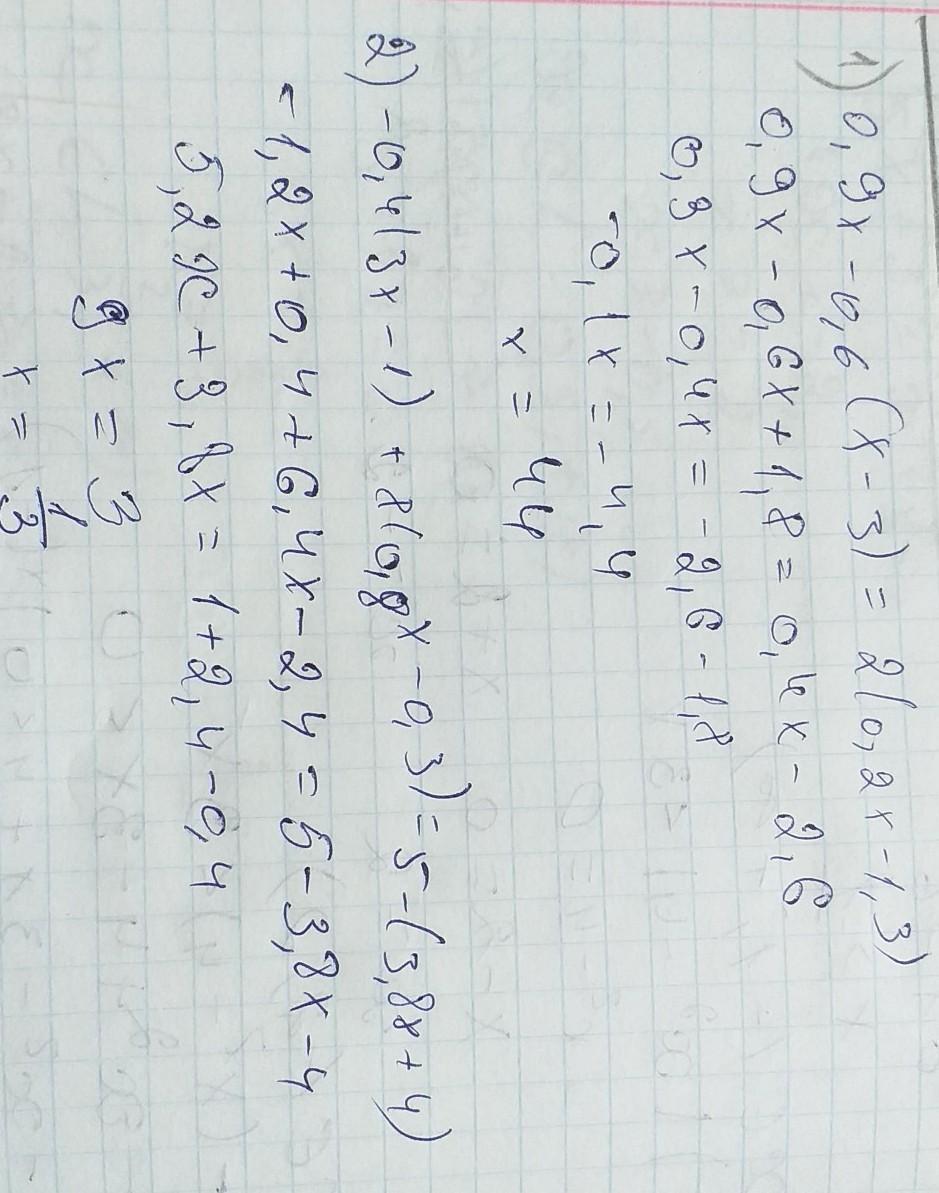 1) 0,9x - 0,6 (x - 3) = 2(0,2x - 1,3)
0,9x - 0,6x + 1,8 = 0,4x - 2,6
0,3x - 0,4x = -2,6 - 1,8
-0,1x = -4,4
x = 44
2) -0,4(3x - 1) + 8(0,8x - 0,3) = 5 - (3,8x + 4)
-1,2x + 0,4 + 6,4x - 2,4 = 5 - 3,8x - 4
5,2x + 3,8x = 1 + 2,4 - 0,4
9x = 3
x = 1/3